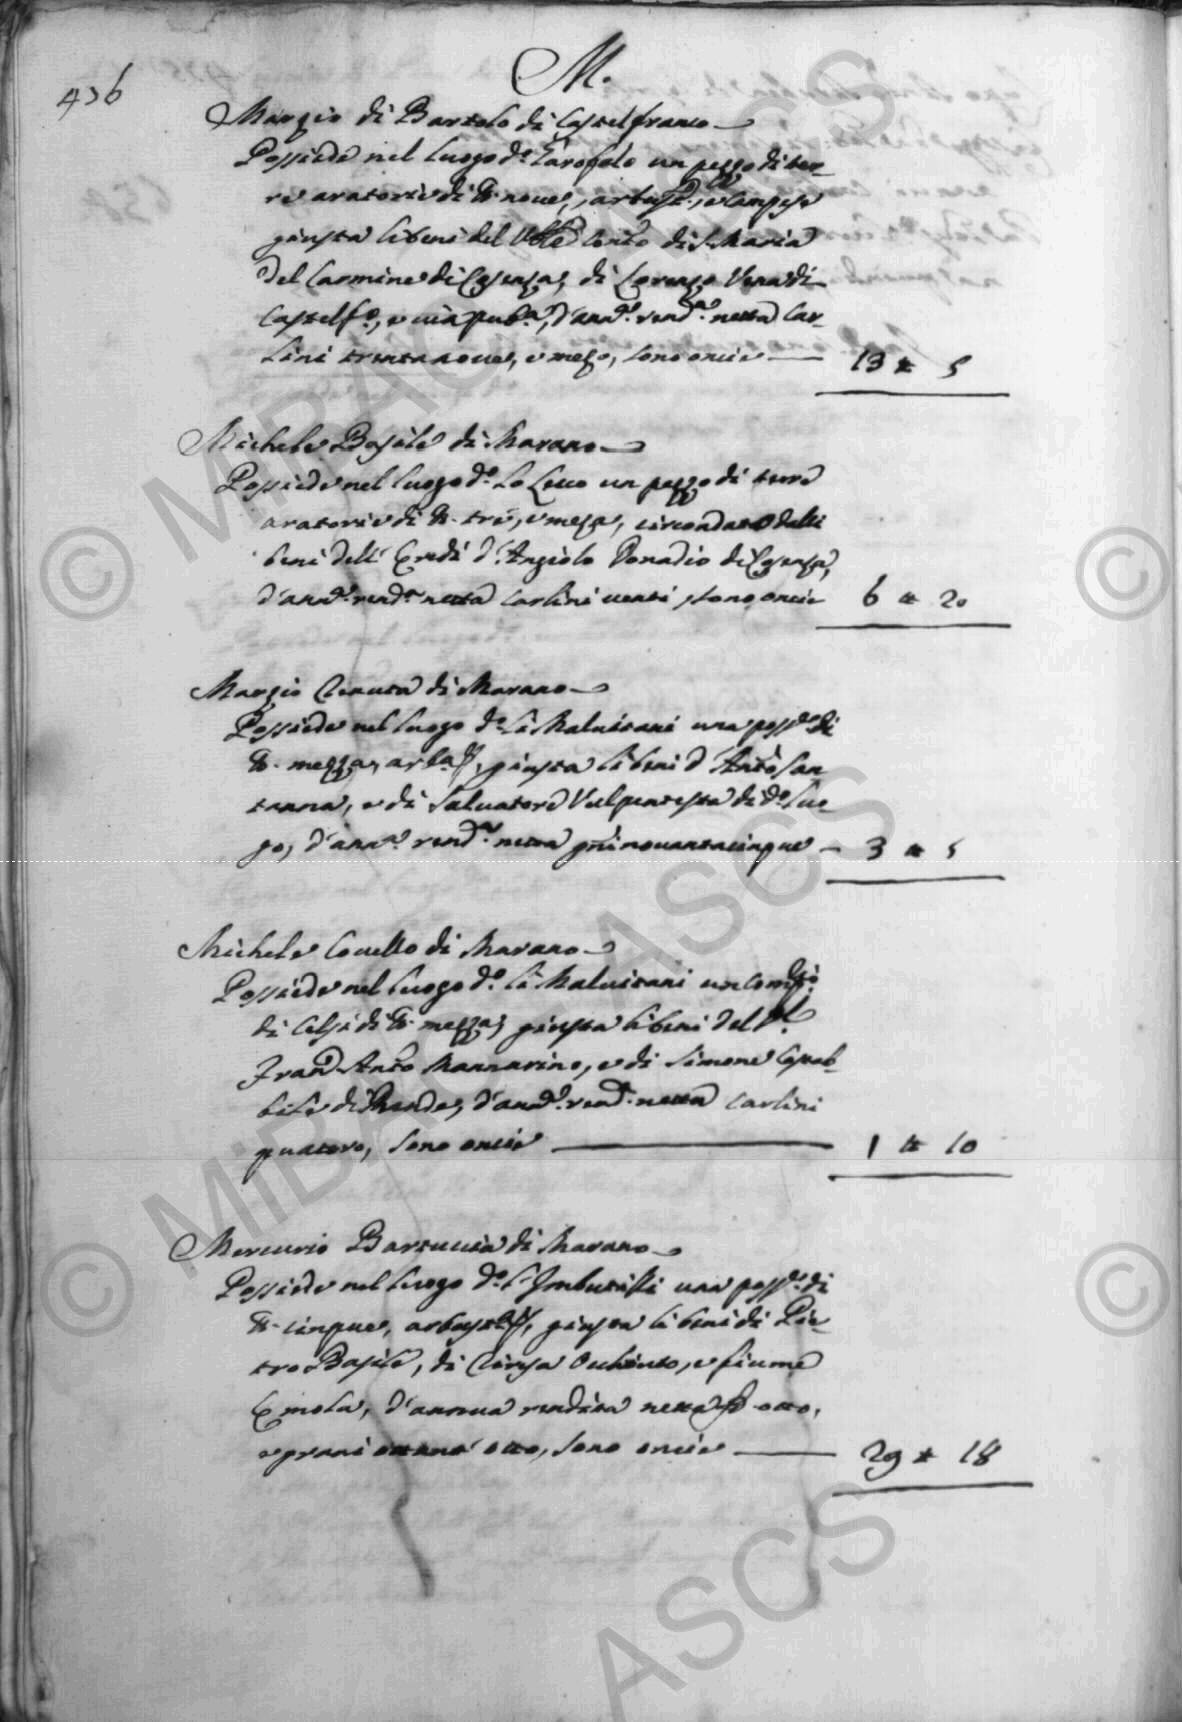 M.
436
Marzio di Bartolo di Castelfranco
Possiede nel luogo d.º Garofolo un pezzo di ter-
re aratorie di tt. nove, arbust.e, e campese
giusta li beni del V.le Conto di S. Maria
del Carmine di Cosenza, di Lorenzo Vena di
Castelf.o, e via pub.a, d'ann.a rend.a netta Car-
lini trentanove, e mezo, sono oncie 13 tt 5
Michele Basile di Marano
Possiede nel luogo d.º Lo Leuo un pezzo di terre
aratorie di tt. tre, e meza, circondato dalli
beni dell' Eredi d'Angiolo Donadio di Cosenza,
d'ann.a rend.a netta Carlini venti, sono oncie 6 tt 20
Marzio Tenuta di Marano
Possiede nel luogo d.º li Malvitani una poss.e di
tt. mezza, arb.ta, giusta li beni d'Anto San
tanna, e di Salvatore Vulpentesta di d.º luo-
go, d'ann.a rend.a netta g.ni novantacinque 3 tt 5
Michele Covello di Marano
Possiede nel luogo d.º li Malvitani un comp.to
di Celsi di tt. mezza, giusta li beni del
Fran.o Ant.o Mannarino, e di Simone
di Rende, d'ann.a rend.a netta Carlini
quatero, sono oncie 1 tt 10
Mercurio Bartuccia di Marano
Possiede nel luogo d.º l'Imbutilli una poss.e di
tt. cinque, arbustata, giusta li beni di Pie-
tro Basile, di Cinza, e fiume
Emola, d'annua rendita netta otto,
e grani ottant'otto, sono oncie 29 tt 18
© MiBAC ASCS